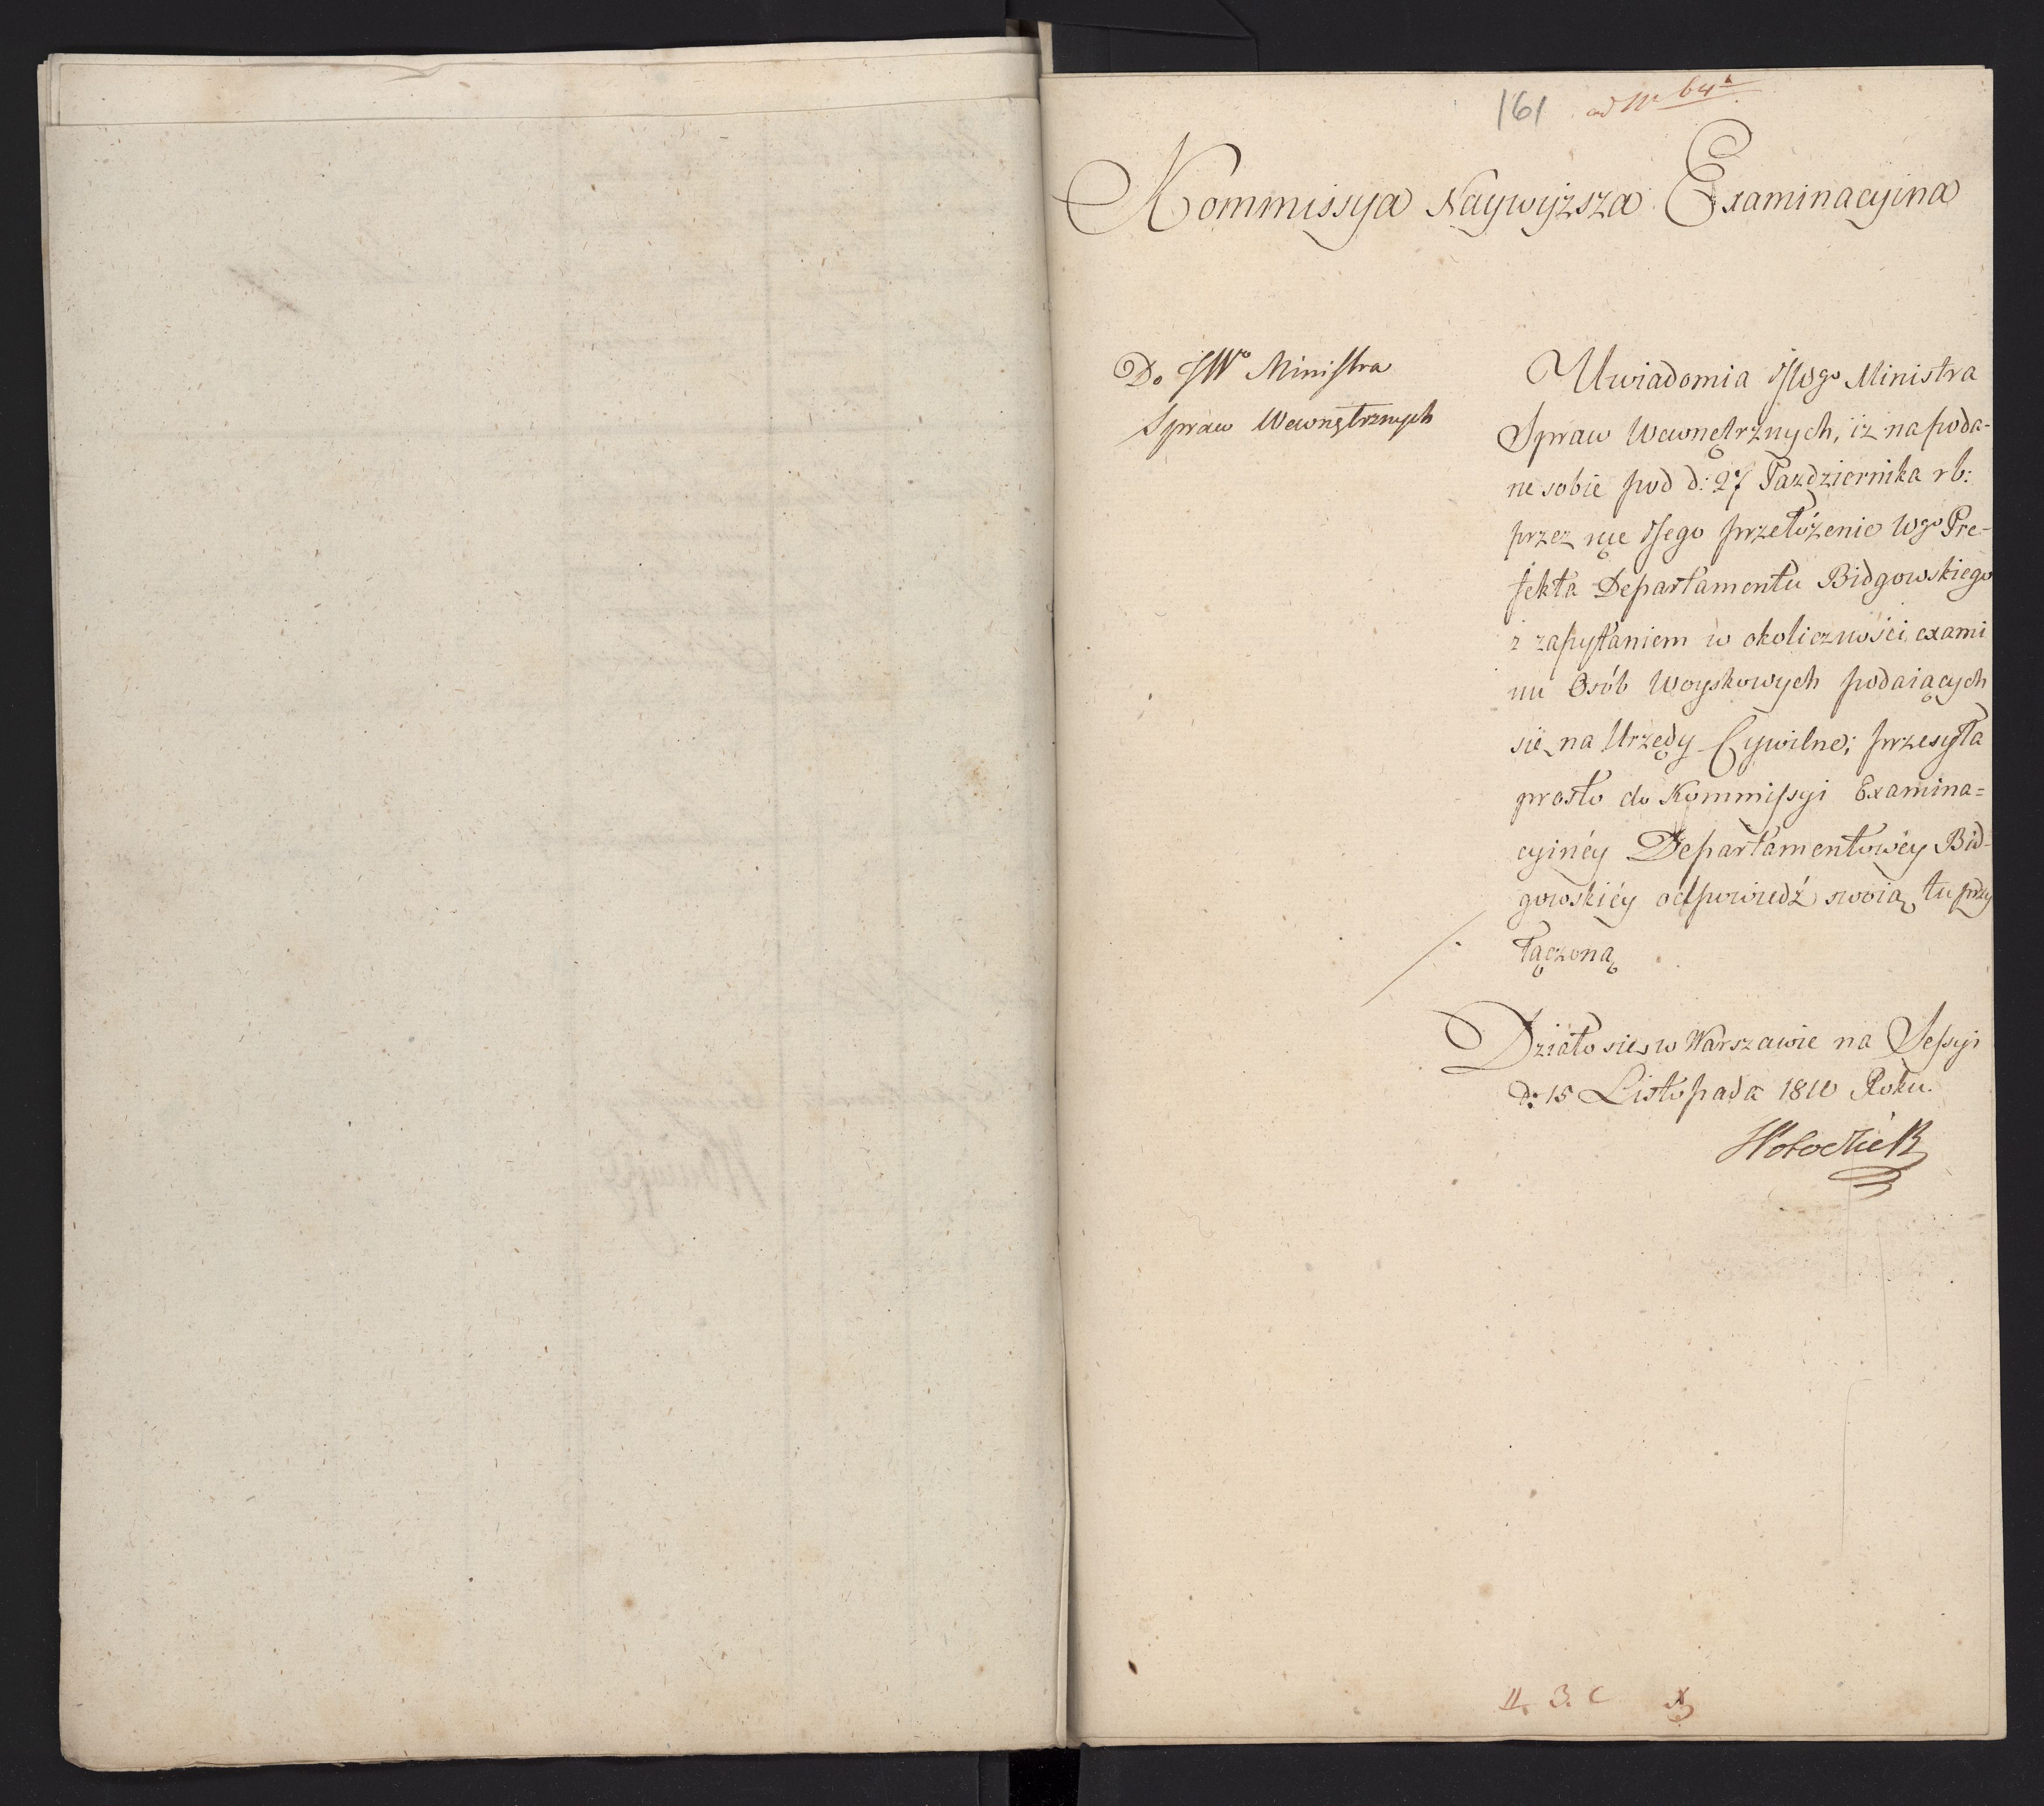 161 ad Nr 64
Kommissya Naywyższa Examinacyina
Do JWo Ministra
Spraw Wewnętrznych
Uwiadomia JWgo Ministra
Spraw Wewnętrznych, iż na poda-
ne sobie pod d: 27 Pazdziernika rb:
przez nie Jego przełożenie Wgo Pre-
fekta Departamentu Bidgowskiego
z zapytaniem w okoliczności exami
nu Osób Woyskowych podaiących
się na Urzędy Cywilne; przesyła
prosto do Kommissyi Examina=
cyinéy Departamentowéy Bid-
gowskiéy odpowiedź swoią tu przy
łączoną
Działo się w Warszawie na Sessyi
d: 15 Listopada 1810 Roku.
II. 3. C